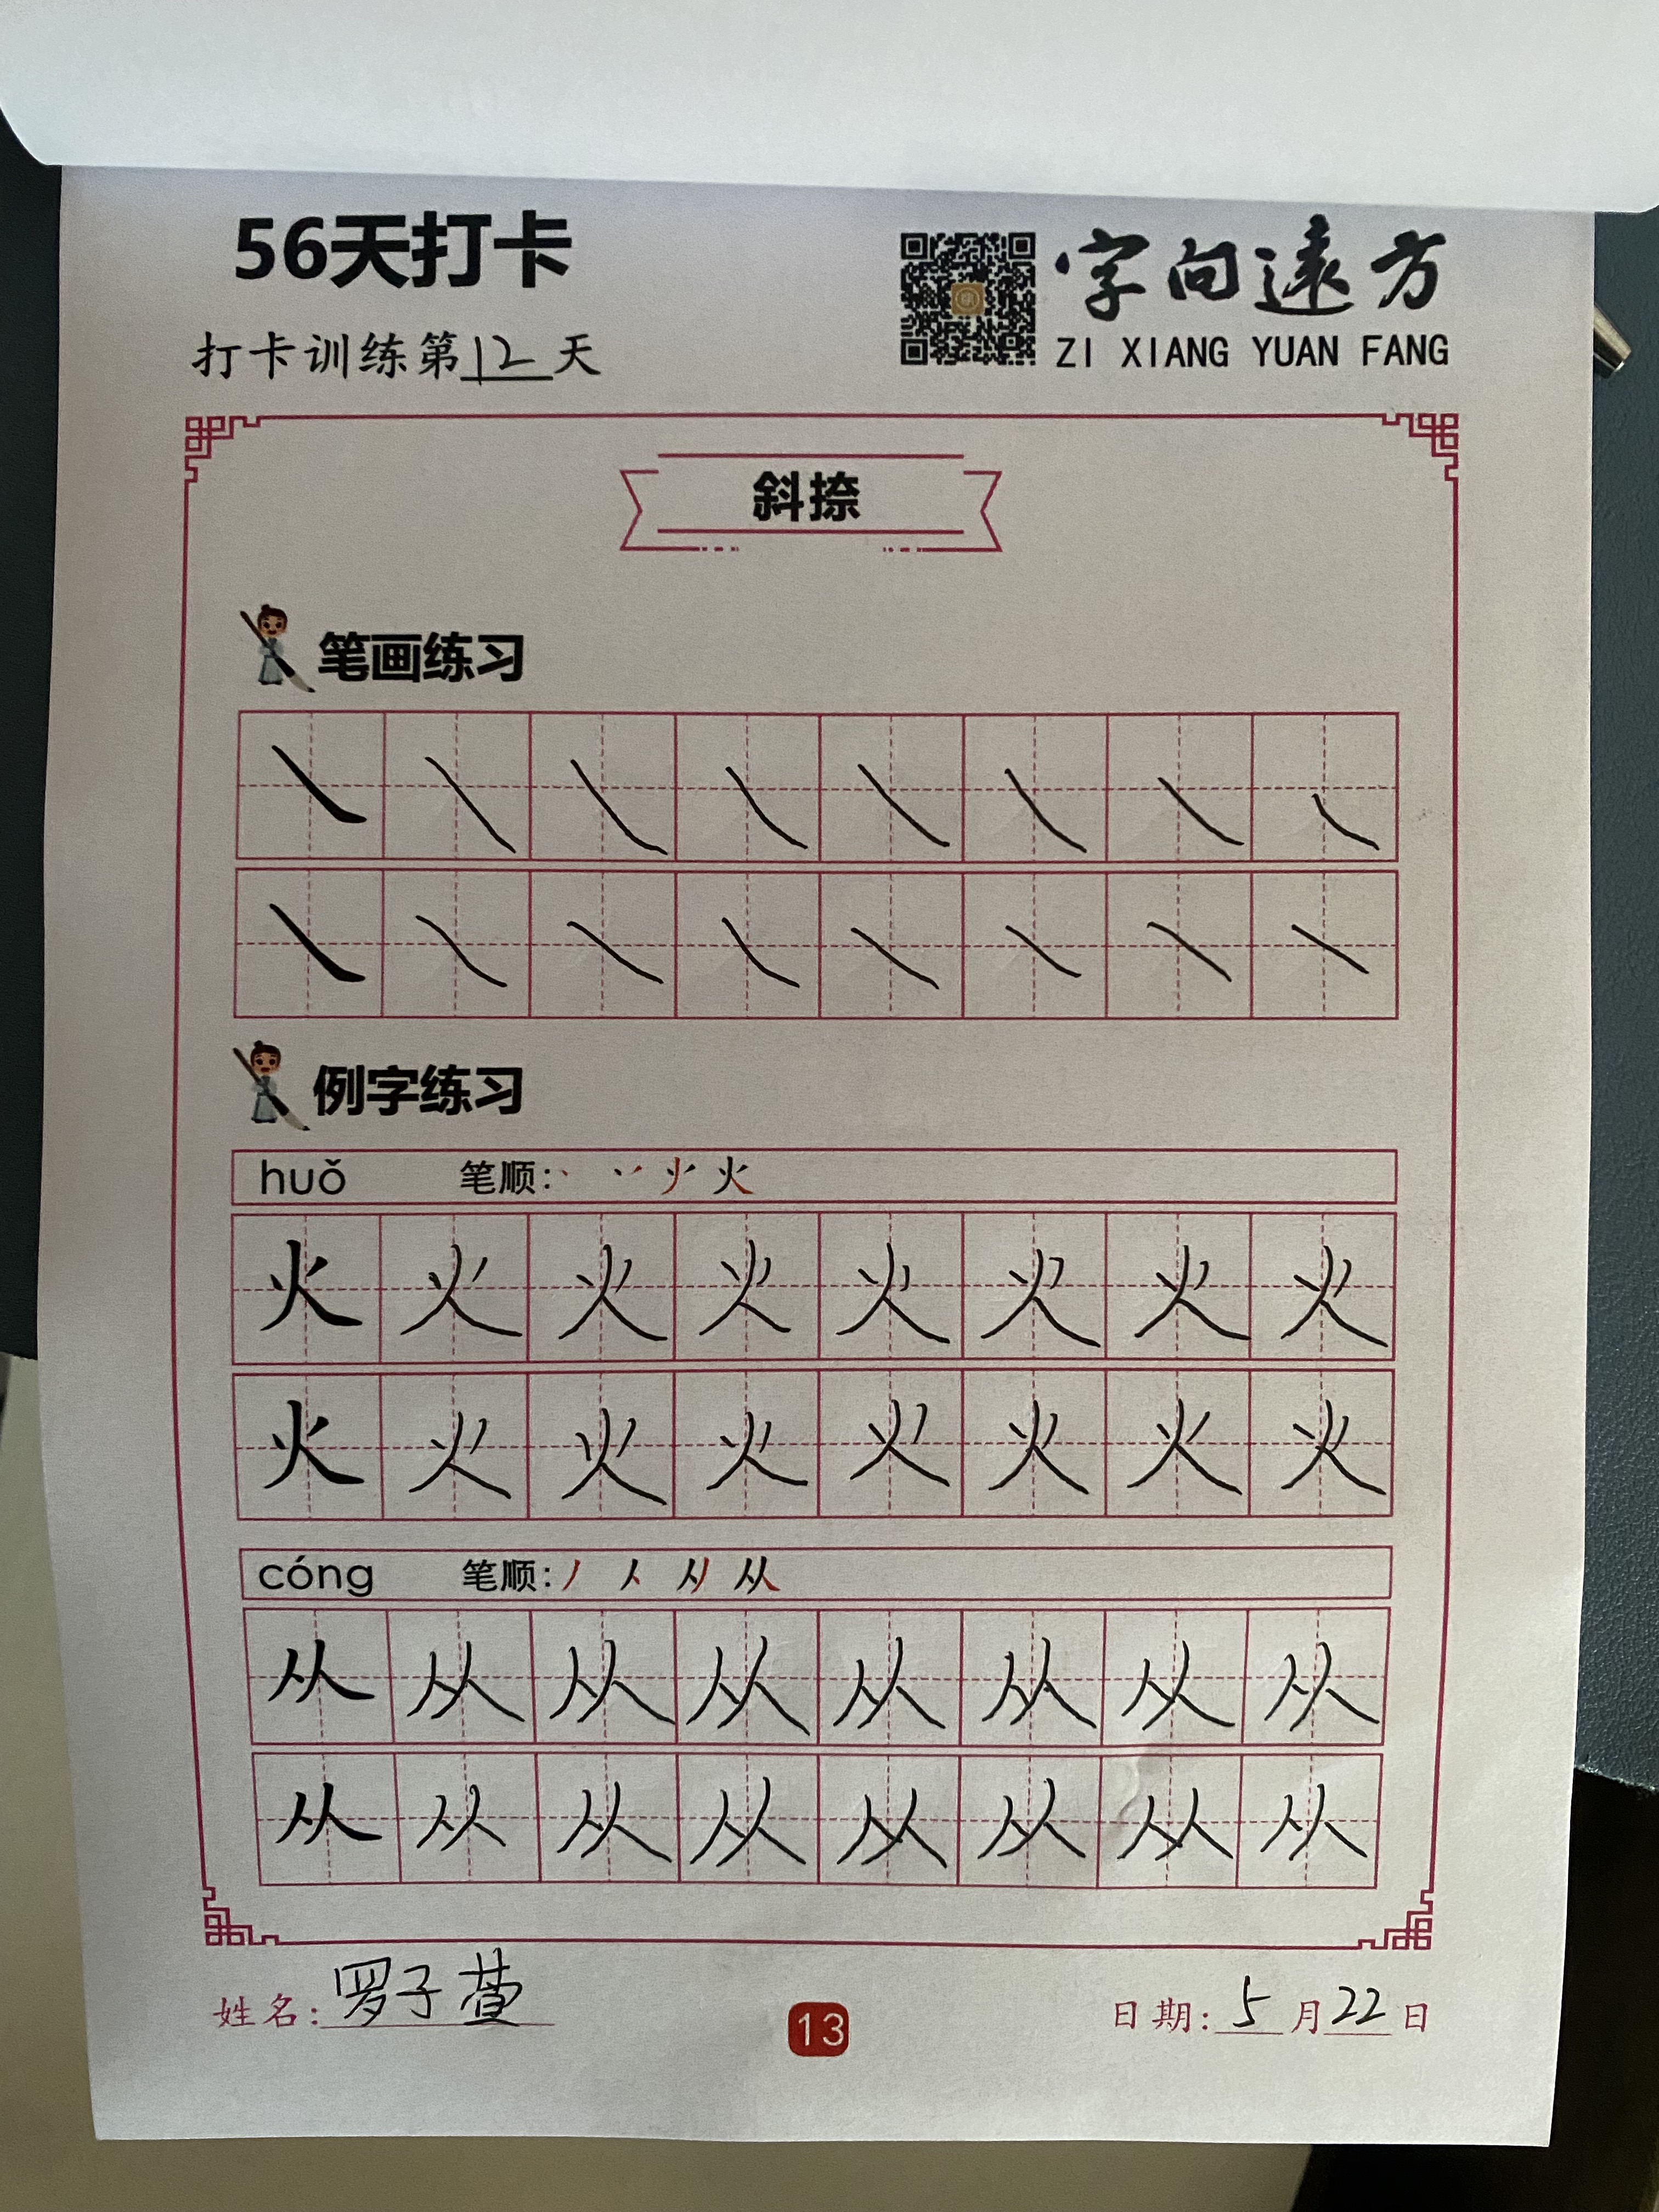 56天打卡
字向遠方
ZI XIANG YUAN FANG
打卡训练第12天
斜捺
笔画练习
例字练习
huǒ 笔顺: 火
火 火 火 火 火 火 火 火
火 火 火 火 火 火 火 火
cóng 笔顺: 从
从 从 从 从 从 从 从 从
从 从 从 从 从 从 从 从
姓名: 罗子萱
13
日期: 5月22日